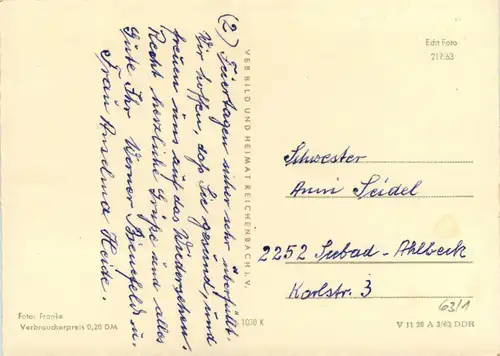 (2) Feiertagen sicher sehr überfüllt.
Wir hoffen, daß Sie gesund, und
freuen uns auf das Wiedersehen.
Recht herzliche Grüße und alles
Gute Ihr Werner Bienefeld u.
Frau Anselma Heide.
VEB BILD UND HEIMAT REICHENBACH I. V.
Echt Foto
217/63
Schwester
Anni Seidel
2252 Seebad-Ahlbeck
Karlstr. 3
63/1
Foto: Franke
Verbraucherpreis 0,20 DM
1038 K
V 11 28 A 3/63 DDR